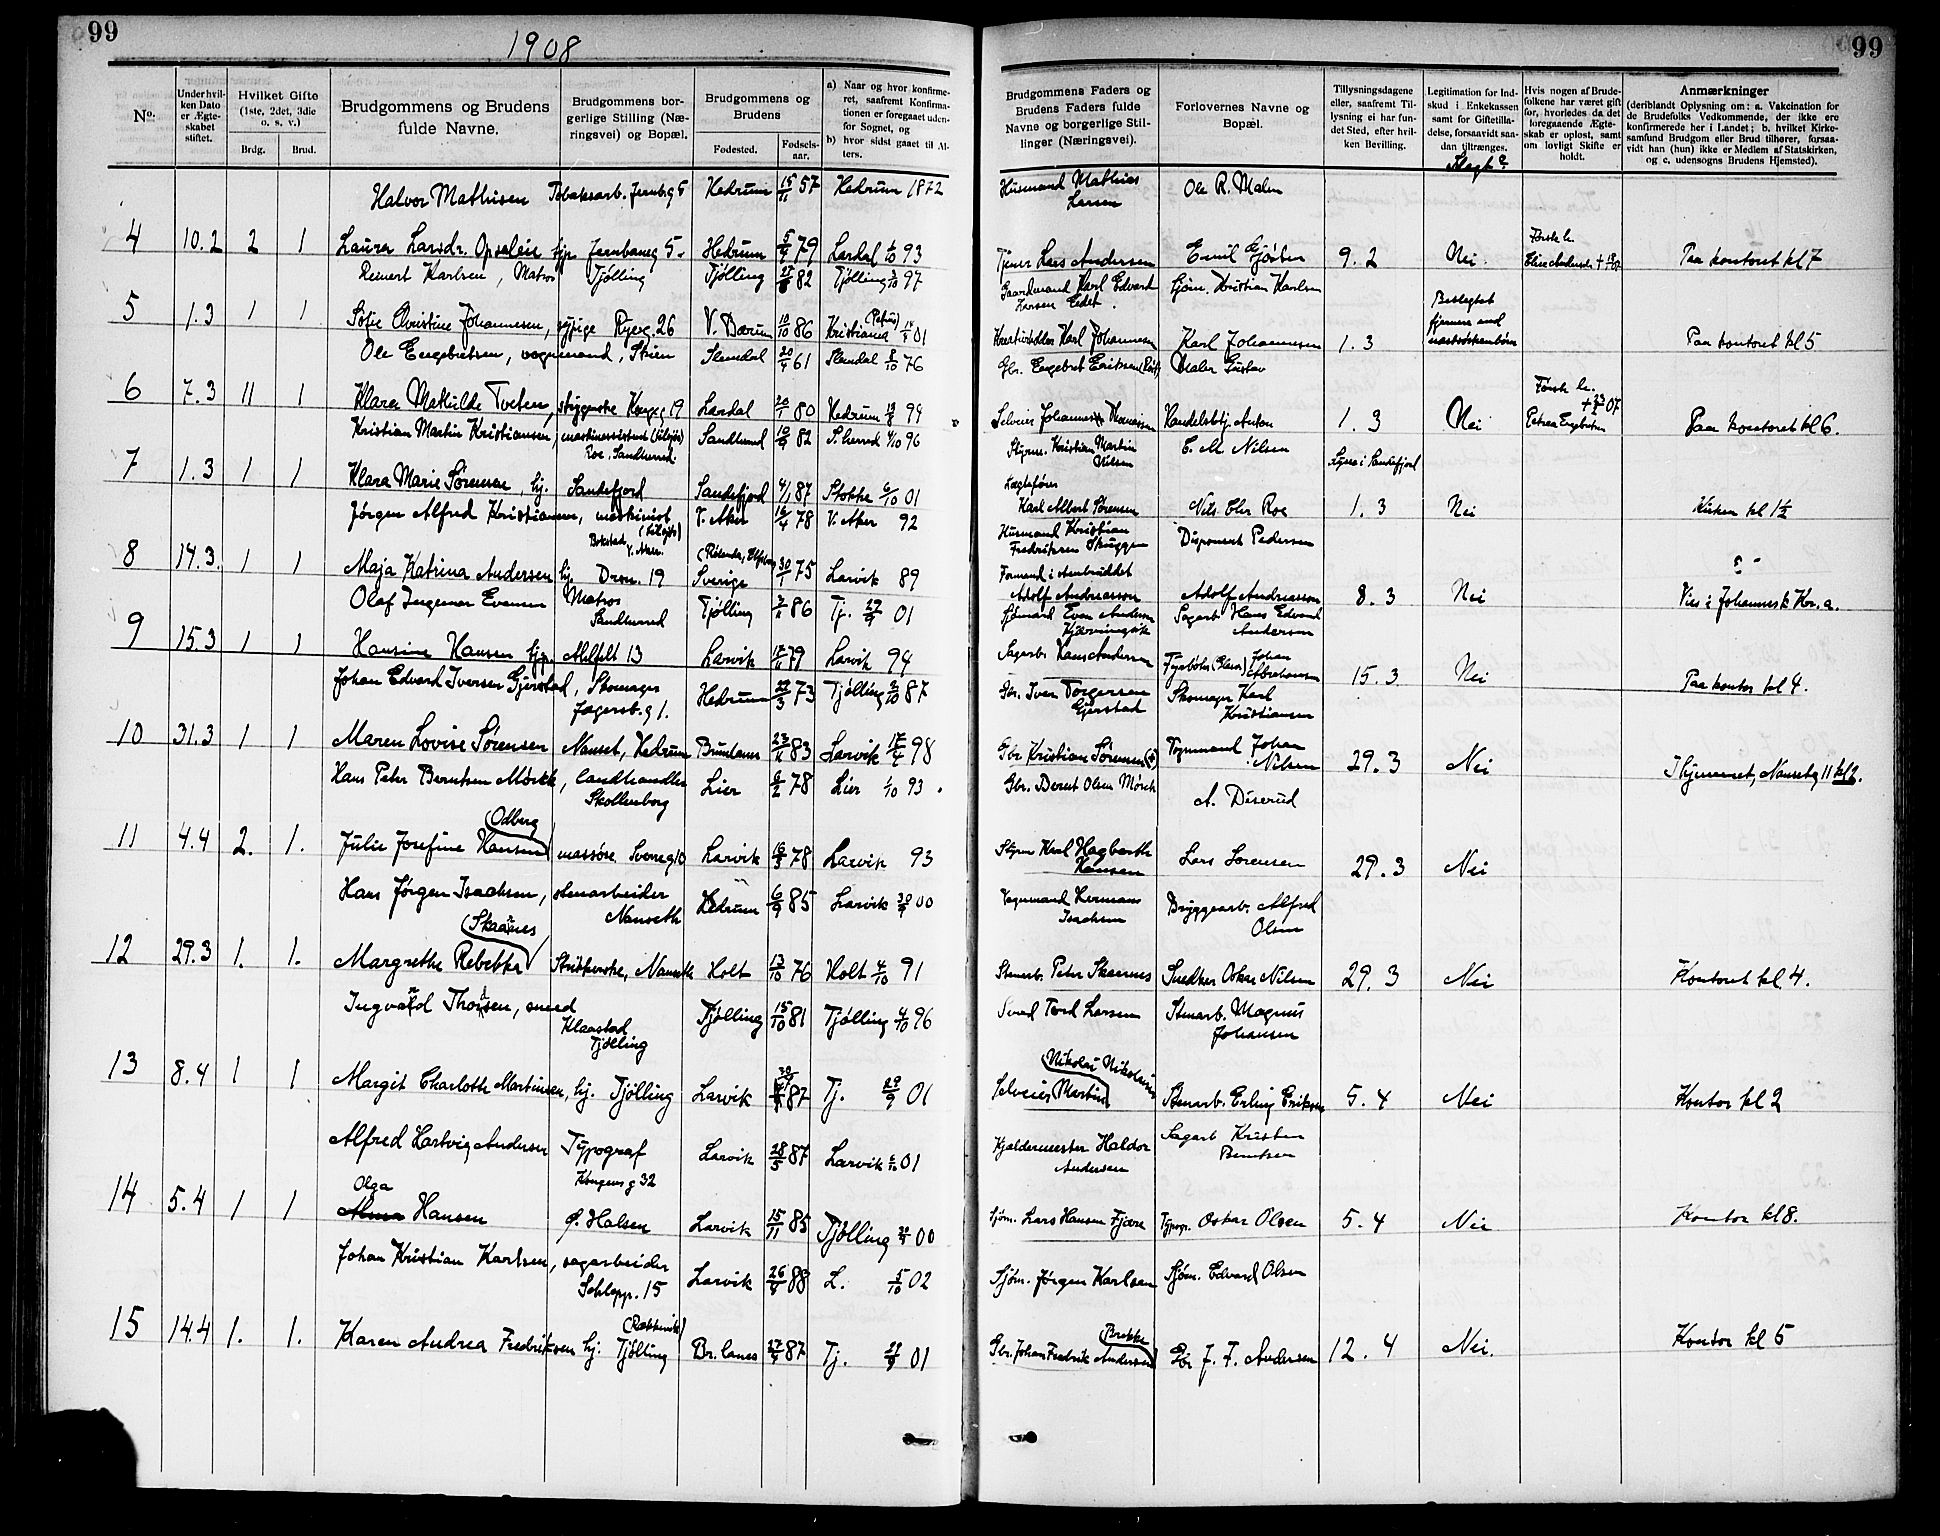 99
1908
99
No.
Under hvilken Dato er Ægteskabet stiftet.
Hvilket Gifte (1ste, 2det, 3die o. s. v.)
Brdg.
Brud.
Brudgommens og Brudens fulde Navne.
Brudgommens borgerlige Stilling (Næringsvei) og Bopæl.
Brudgommens og Brudens
Fødested.
Fødselsaar.
a) Naar og hvor konfirmeret, saafremt Konfirmationen er foregaaet udenfor Sognet, og
b) hvor sidst gaaet til Alters.
Brudgommens Faders og Brudens Faders fulde Navne og borgerlige Stillinger (Næringsvei).
Forlovernes Navne og Bopæl.
Tillysningsdagene eller, saafremt Tillysning ei har fundet Sted, efter hvilken Bevilling.
Legitimation for Indskud i Enkekassen samt for Giftetilladelse, forsaavidt saadan tiltrænges.
Hvis nogen af Brudefolkene har været gift før, hvorledes da det foregaaende Ægteskab er opløst, samt om lovligt Skifte er holdt.
Anmærkninger
(deriblandt Oplysning om: a. Vakcination for de Brudefolks Vedkommende, der ikke ere konfirmerede her i Landet; b. hvilket Kirkesamfund Brudgom eller Brud tilhører, forsaavidt han (hun) ikke er Medlem af Statskirken, og c. udensogns Brudens Hjemsted).
Slegt?
Halvor Mathisen Tobaksarb. Jernbg 5 Hedrum 15/11 57 Hedrum 1872 Husmand Mathias Larsen Ole R. Malm
4 10.2 2 1 Laura Larsdr. Opsalen hjp Jernbaneg 5. Hedrum 5/4 79 Lardal 1/10 93 Tjener Lars Andersen Emil Gjörtz 9.2 Nei. Paa kontoret kl 7
Reinert Karlsen, Matros Tjølling Tjølling 82 Tjølling 3/10 97 Gaardmand Karl Edvard Larsen Eidet. Sjøm. Kristian Karlsen
5 1.3 1 1 Sofie Christine Johannessen, sypige Ryeng 26 V. Bærum 10/10 86 Kristiania (Petrus) 14/4 01 Karl Johannessen Karl Johannessen 1.3 Beslegtet fjernere end næstsøskenbørn Paa kontoret kl 5
Ole Engebretsen, vognmand, Skien Slemdal 20/4 61 Slemdal 8/10 76 Gbr. Engebret Eriksen Maler Gustav
6 7.3 11 1 Klara Mathilde Tveten, strygerske Kongeg 19 Lardal 20/1 80 Hedrum 99 Selveier Johannes Handelsbtj. Anton 1.3 Nei Første h. + 23/2 07 Petrea Engebretsen Paa kontoret kl 6.
Kristian Martin Kristiansen, maskinassistent Roe, Sandherred. Sandherred 10/9 82 S.herred 4/10 96 Styrm. Kristian Martin Nilsen C. M. Nilsen Lyses i Sandefjord
7 1.3 1 1 Klara Marie Sørensen, hj. Sandefjord Sandefjord 4/1 87 Stokke 6/10 01 Karl Albert Sørensen Nils Olsen Roe 1.3 Nei Kirken kl 1½
Jørgen Alfred Kristiansen, maskinist V. Aker. V. Aker 16/4 78 V. Aker 92 Husmand Kristian Fredriksen Skuggen Disponent Pedersen
8 14.3. 1 1 Maja Katrina Andersen hj. Dron. 19 Sverige 30/1 75 Larvik 89 Formand i Adolf Andreassen Adolf Andreassen 8.3 Nei Vies i Johannesk. Kr.a.
Olaf Ingemar Evensen Matros Sandherred Tjølling 86 Tj. 29/9 01 Sjømand Even Andersen Sagarb. Hans Edvard Andersen
9 15.3 1 1 Hansine Hansen hjp. Ahlfelt 13 Larvik 79 Larvik 94 Sagarb. Hans Andersen Fyrbøter Johan Abrahamsen 15.3. Nei Paa kontor kl 4.
Johan Edvard Iversen Gjerstad, Skomager Jagersb.g 1. Hedrum 22/3 73 Tjølling 2/10 87 Gbr. Iver Torgersen Gjerstad Skomager Karl Kristiansen
10 31.3 1 1 Maren Lovise Sørensen Nanset, Hedrum Brunlanes 23/11 83 Larvik 17/4 98 Gbr Kristian Sørensen (+) Vognmand Johan Nilsen 29.3 Nei I hjemmet, Nansetg 11 kl 2.
Hans Peter Berntsen Mørkk, landhandler Skollenborg Lier 6/2 78 Lier 1/10 93. Gbr. Bernt Olsen Mørch A. Diserud
11 4.4 2. 1. Julie Josefine Hansen (Odberg) massøse Sverreg 10 Larvik 16/3 78 Larvik 93 Styrm Karl Hagbarth Hansen Lars Sørensen 29.3 Nei
Hans Jørgen Isachsen, stenarbeider Nanseth Hedrum 6/9 85 Larvik 30/9 00 Vognmand Herman Isachsen Bryggearb. Alfred Olsen
12 29.3 1. 1. Margrethe Rebekka (Skaanes) Strikkerske, Nanseth Holt 13/10 76 Holt 4/10 91 Stenarb. Peter Skaanes Snedker Oskar Nilsen 29.3 Nei Kontoret kl 4.
Ingvald Thorsen, smed Klaastad Tjølling Tjølling 15/10 81 Tjølling 4/10 96 Smed Tord Larsen Stenarb. Magnus Johansen
13 8.4 1 1 Margit Charlotte Martinsen, hj. Tjølling Larvik 87 Tj. 29/9 01 Selveier Martin (Nikolai Nikolaisen) Stenarb. Erling Eriksen 5.4 Nei Kontor kl 2
Alfred Hartvig Andersen Typograf Kongens g 32 Larvik 28/5 87 Larvik 6/10 01 Kjældermester Haldor Andersen Sagarb Kristen Berntsen
14 5.4 1 1 Olga Hansen Ø. Halsen Larvik 15/11 85 Tjølling 00 Sjøm. Lars Hansen Fjære Typogr. Oskar Olsen 5.4 Nei Kontor kl 8.
Johan Kristian Karlsen, sagarbeider Schlepp. 15 Larvik 26/4 88 L. 5/10 02 Sjøm. Jørgen Karlsen Sjøm. Edvard Olsen
15 14.4 1. 1. Karen Andrea Fredriksen hj. Tjølling (Rækkevik) Br.lanes 27/4 87 Tj. 29/9 01 Gbr. Johan Fredrik Andersen (Brekke) Gbr J. F. Andersen 12.4 Nei. Kontor kl 5